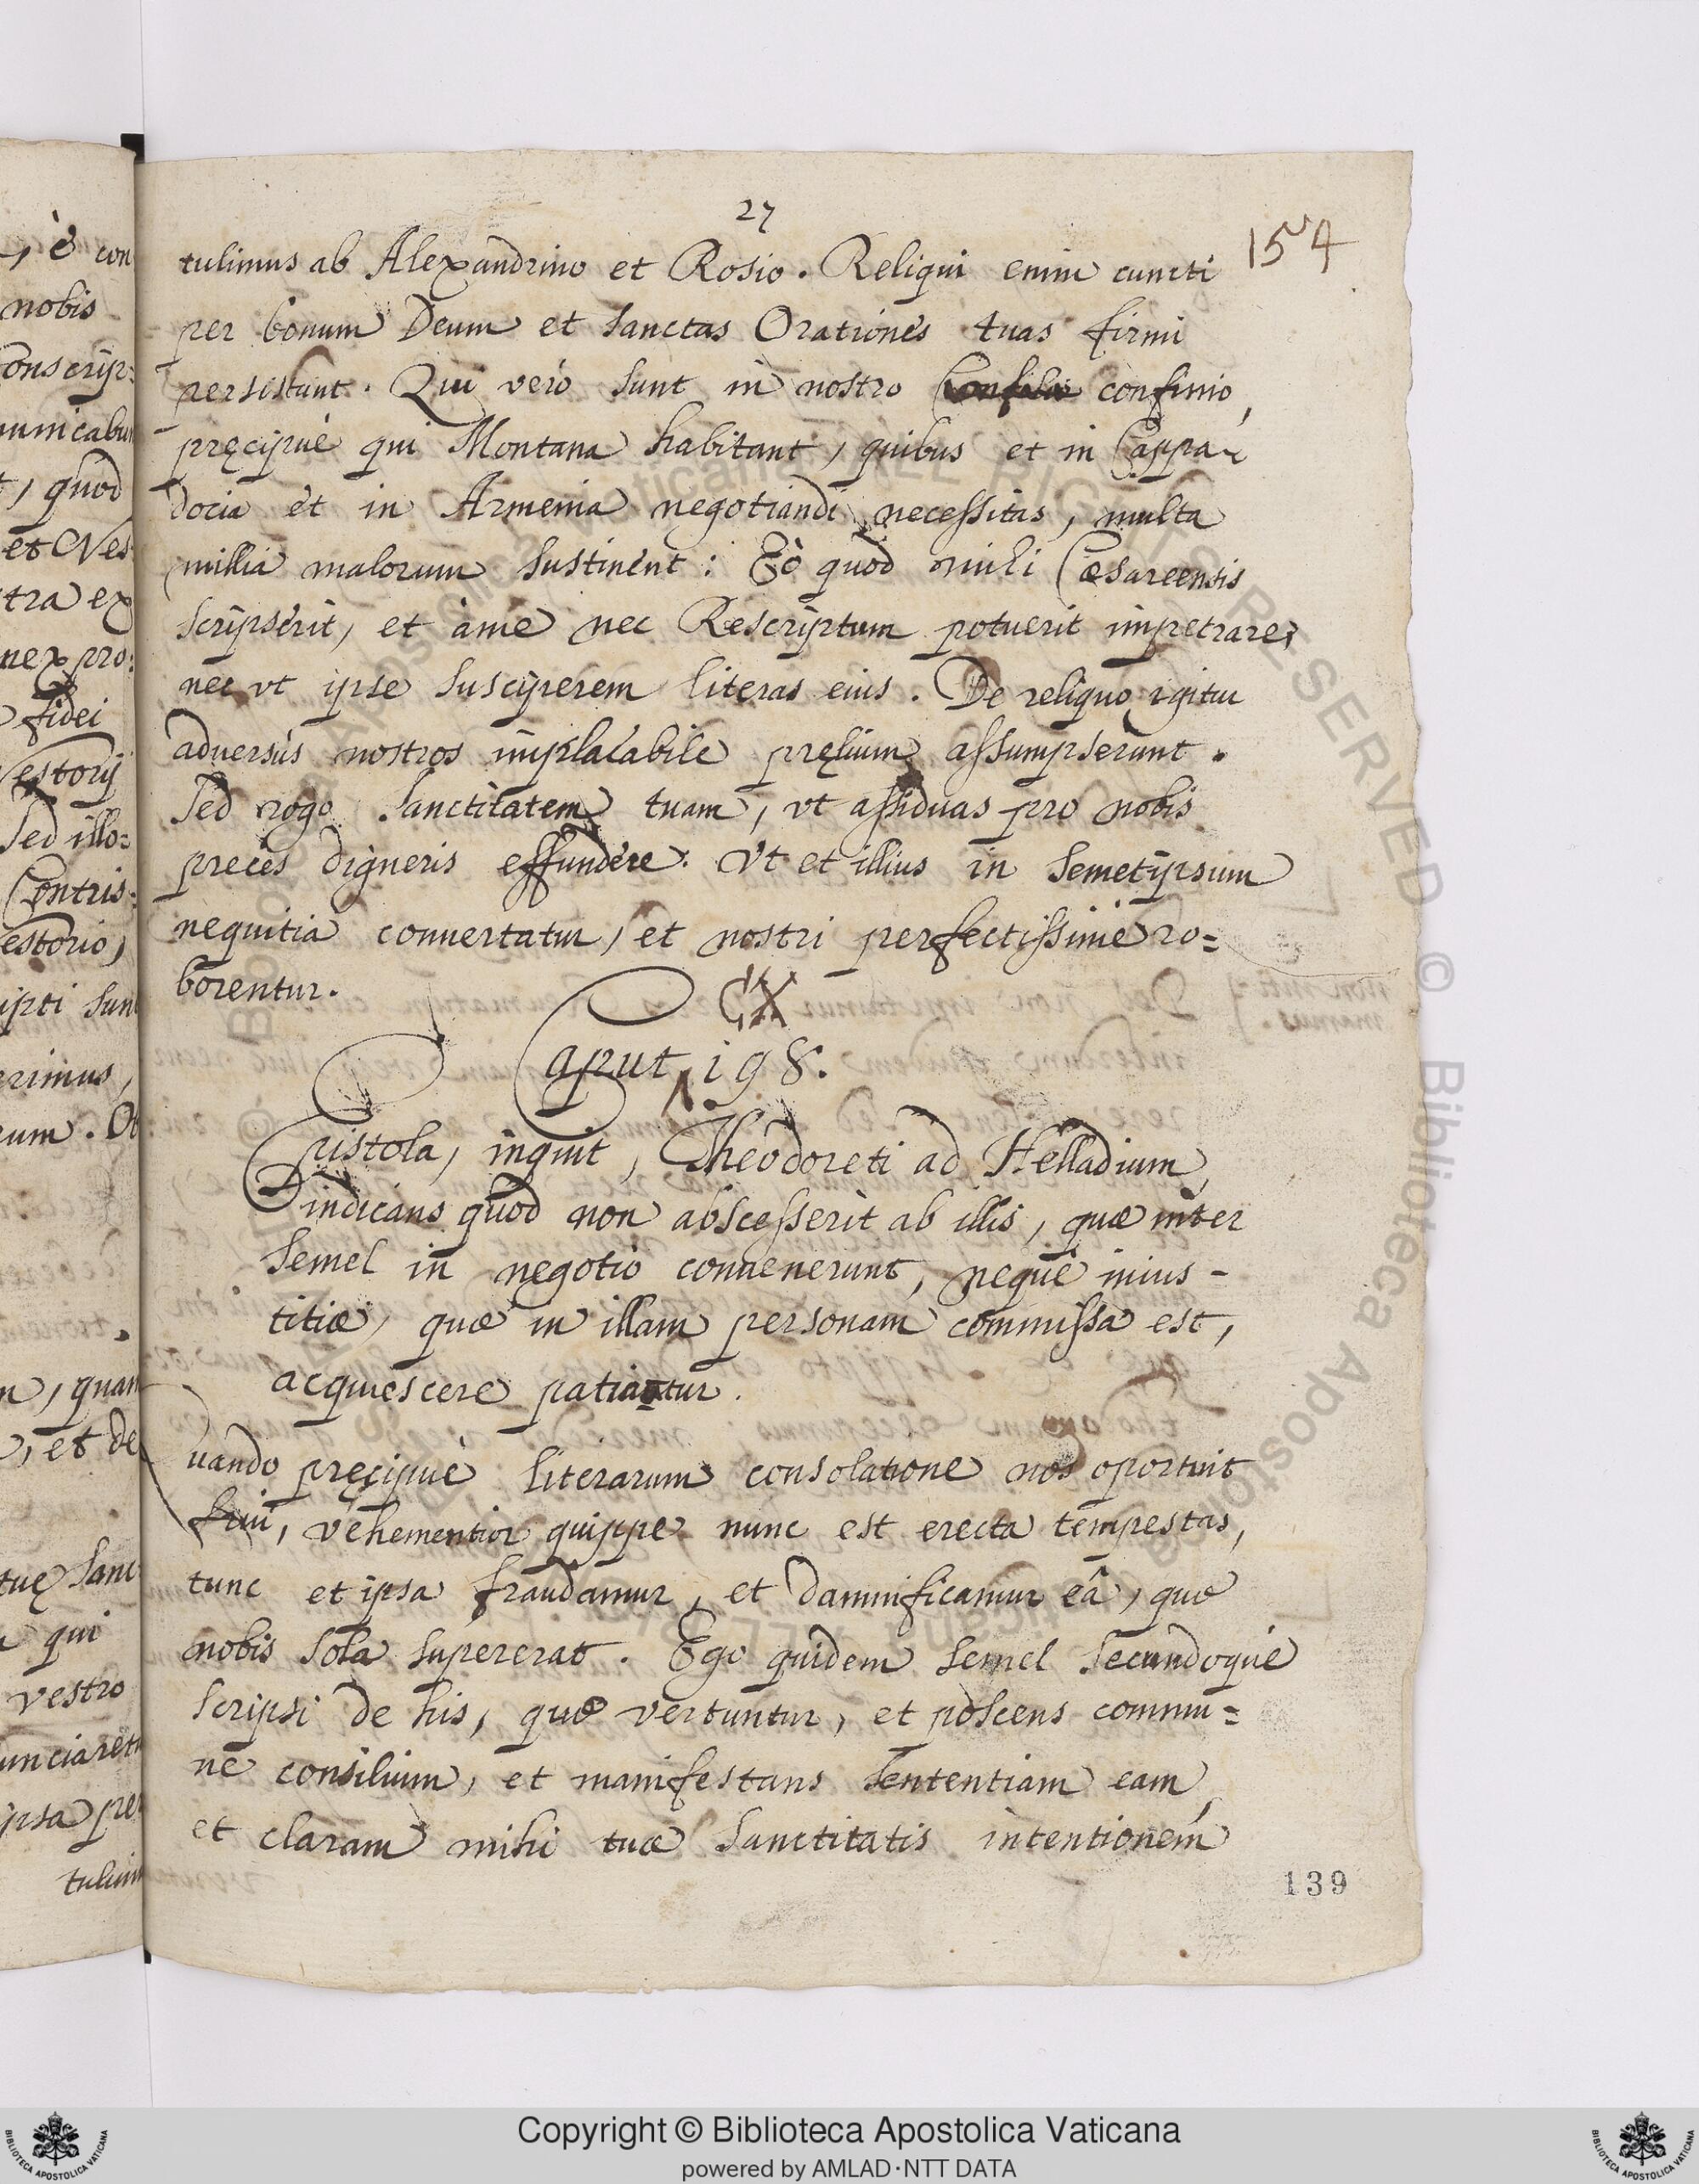 27
154
tulimus ab Alexandrino et Rosio. Reliqui enim cuncti
per bonum Deum et sanctas Orationes tuas firmi
persistunt. Qui verò sunt in nostro confinio,
pręcipuè qui Montana habitant, quibus et in Cappa-
docia et in Armenia negotiandi necessitas, multa
millia malorum sustinent: Eò quod mihi Cæsareensis
scripserit, et àme nec Rescriptum potuerit impetrare,
nec vt ipse susciperem literas eius. De reliquo igitur
aduersùs nostros implacabile pręlium assumpserunt.
Sed rogo Sanctitatem tuam, vt assiduas pro nobis
preces digneris effundere. Vt et illius in semetipsum
nequitia conuertatur, et nostri perfectissimè ro=
borentur.
CX
Caput 198.
Epistola, inquit, Theodoreti ad Helladium,
indicans quod non abscesserit ab illis, quæ inter
semel in negotio conuenerunt, neque inius-
titiæ, quæ in illam personam commissa est,
acquiescere patiatur.
uando pręcipuè literarum consolatione nos oportuit
frui, vehementior quippe nunc est erecta tempestas,
tunc et ipsa fraudamur, et damnificamur eâ, quæ
nobis sola supererat. Ego quidem semel secundoque
scripsi de his, quæ vertuntur, et poscens commu=
ne consilium, et manifestans sententiam eam,
et claram mihi tuæ sanctitatis intentionem
139
, è con
nobis
onscrip=
unicabu
, quod
et Nes
tra ex
nex pro=
fidei
estorij
sed illo=
Contris=
estorio,
ipti sun
erimus,
um. Ob
, quan
, et de
tuę sanc
qui
vestro
unciaretu
ipsa per
tulim
Copyright © Biblioteca Apostolica Vaticana
powered by AMLAD·NTT DATA